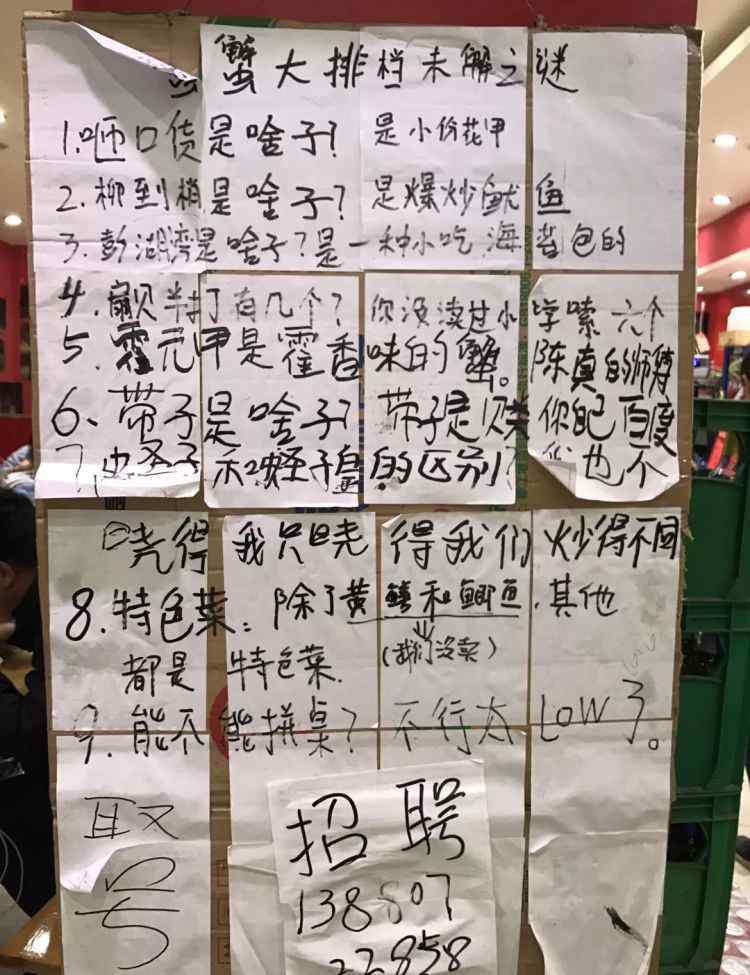 蟹大排档未解之谜
1.咂口货是啥子? 是小份花甲
2.柳到梢是啥子? 是爆炒鱿鱼
3.彭湖湾是啥子?是一种小吃 海苔包的
4.扇贝半打有几个? 你没读过小学嗦 六个
5.霍元甲是霍香味的蟹。陈真的师傅
6、带子是啥子? 带子是贝类 你自己百度
7、蛏子和蛏子皇的区别? 我也不
晓得 我只晓得我们炒得不同
8.特色菜: 除了黄鳝和鲫鱼.其他
(我们没卖)
都是特色菜.
9.能不能拼桌? 不行太LOW了。
取
号
招聘
138807
22858